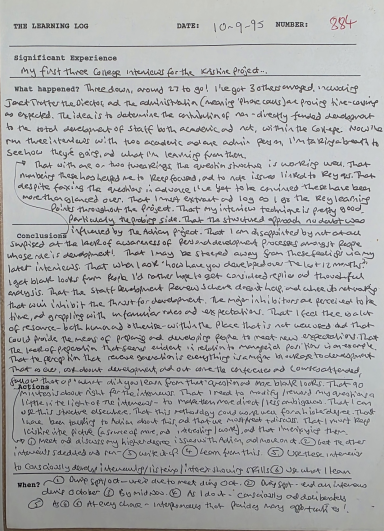 THE LEARNING LOG DATE: 10-9-95 NUMBER: 884
Significant Experience
My first three College interviews for the Kirklees project...
What happened? Three down, around 27 to go! I've got 30 others arranged, including
Janet Trotter the Director, and the administration (meaning 'phone calls) are proving time-consuming
as expected. The idea is to determine the contribution of non-directly funded development
to the total development of staff both academic and not, within the College. Now I've
run three interviews with two academic and one admin person I'm taking a breath to
see how they've gone, and what I'm learning from them.
That with one or two the question structure is working well. That
numbering these has helped me to keep focused, and to note issues linked to key Qs. That
despite faxing the questions in advance I've yet to be convinced these have been
more than glanced over. That I must extract and log as I go the key learning
points throughout the project. That my interview technique is pretty good,
particularly the probing side. That the structured approach, no doubt was
Conclusions influenced by the Adrian project. That I am disappointed but not at all
surprised at the lack of awareness of personal development processes amongst people
whose role is development! That I may be steered away from these
later interviews. That when I ask 'how have you developed over the last 12 months'
I get blank looks from people. I'd rather hope to get considered replies and thoughtful
analysis. That the Staff Development Review scheme doesn't help, and
that inhibit the thrust for development. The major inhibitors are perceived to be
time, and grappling with unfamiliar roles and expectations. That I feel there is a lot
of resource - both human and otherwise - within the place that is not well used and that
could provide the means of preparing and developing people to meet new expectations. That
the lack of preparation that seems evident in relation to managerial positions is an example.
That the perception that revenue generation is everything is a major barrage to development.
That as ever, ask about development and out come the conferences and courses attended,
follow that up 'what did you learn from that' question and more blank looks. That 90
Actions minutes is about right for the interviews. That I need to modify/reword my questions a
little in the light of the interviews - to make them more direct/less ambiguous. That I can
use this structure elsewhere. That this methodology could work well for a higher degree. That
I have been talking to Adrian about this, and that we must meet to discuss. That I must keep
as a source of more, and interesting work, and that
to (1) meet and discuss my higher degree issues with Adrian, and move on it (2) Get the other
interviews scheduled and run (3) write it up (4) learn from this (5) Use these interviews
to consciously develop interviewing/listening/interactioning skills (6) Use what I learn
When? (1) Over Sept/Oct - we're due to meet during Oct. (2) Over Sept - end interviews
during October (3) By mid Nov. (4) As I do it - consciously and deliberately
(5) As (4) (6) At every chance - interpersonal that provides many opportunities!.